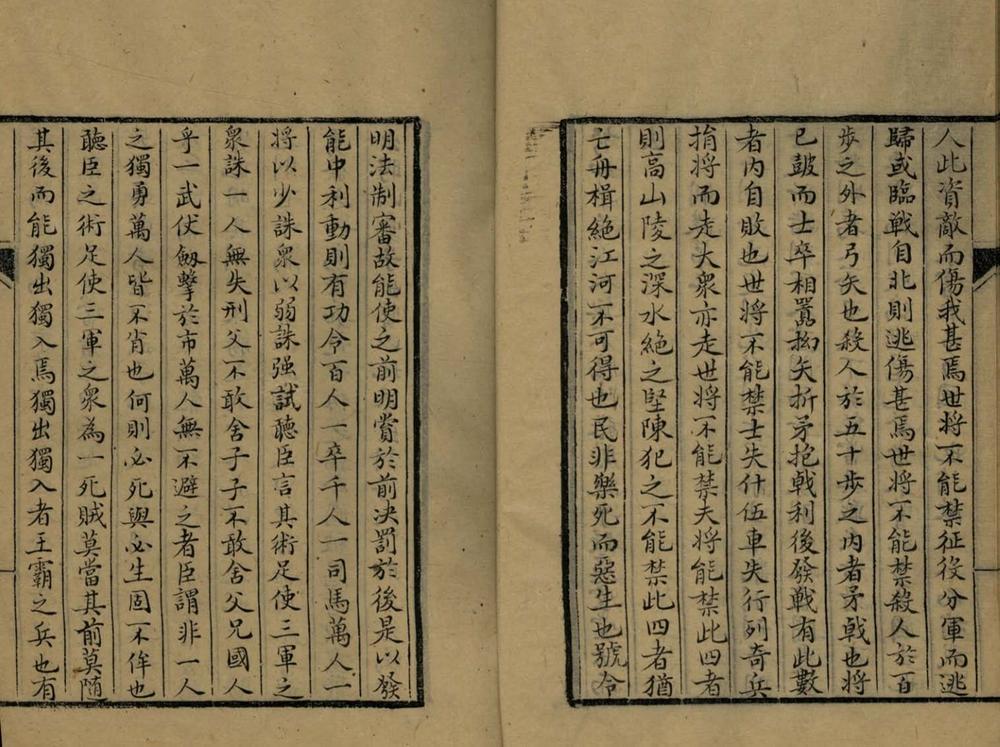 人此資敵而傷我甚焉世將不能禁征役分軍而逃
歸或臨戰自北則逃傷甚焉世將不能禁殺人於百
步之外者弓矢也殺人於五十步之内者矛戟也將
已皷而士卒相嚚拗矢折矛抱戟利後發戰有此數
者内自敗也世將不能禁士失什伍車失行列奇兵
捐將而走大衆亦走世將不能禁夫將能禁此四者
則高山陵之深水絶之堅陳犯之不能禁此四者猶
亡舟楫絶江河不可得也民非樂死而惡生也號令
明法制審故能使之前明賞於前决罰於後是以發
能中利動則有功令百人一卒千人一司馬萬人一
將以少誅衆以弱誅强試聽臣言其術足使三軍之
衆誅一人無失刑父不敢舍子子不敢舍父兄國人
乎一武伏劔擊於市萬人無不避之者臣謂非一人
之獨勇萬人皆不肖也何則必死與必生固不侔也
聽臣之術足使三軍之衆為一死賊莫當其前莫隨
其後而能獨出獨入焉獨出獨入者王霸之兵也有